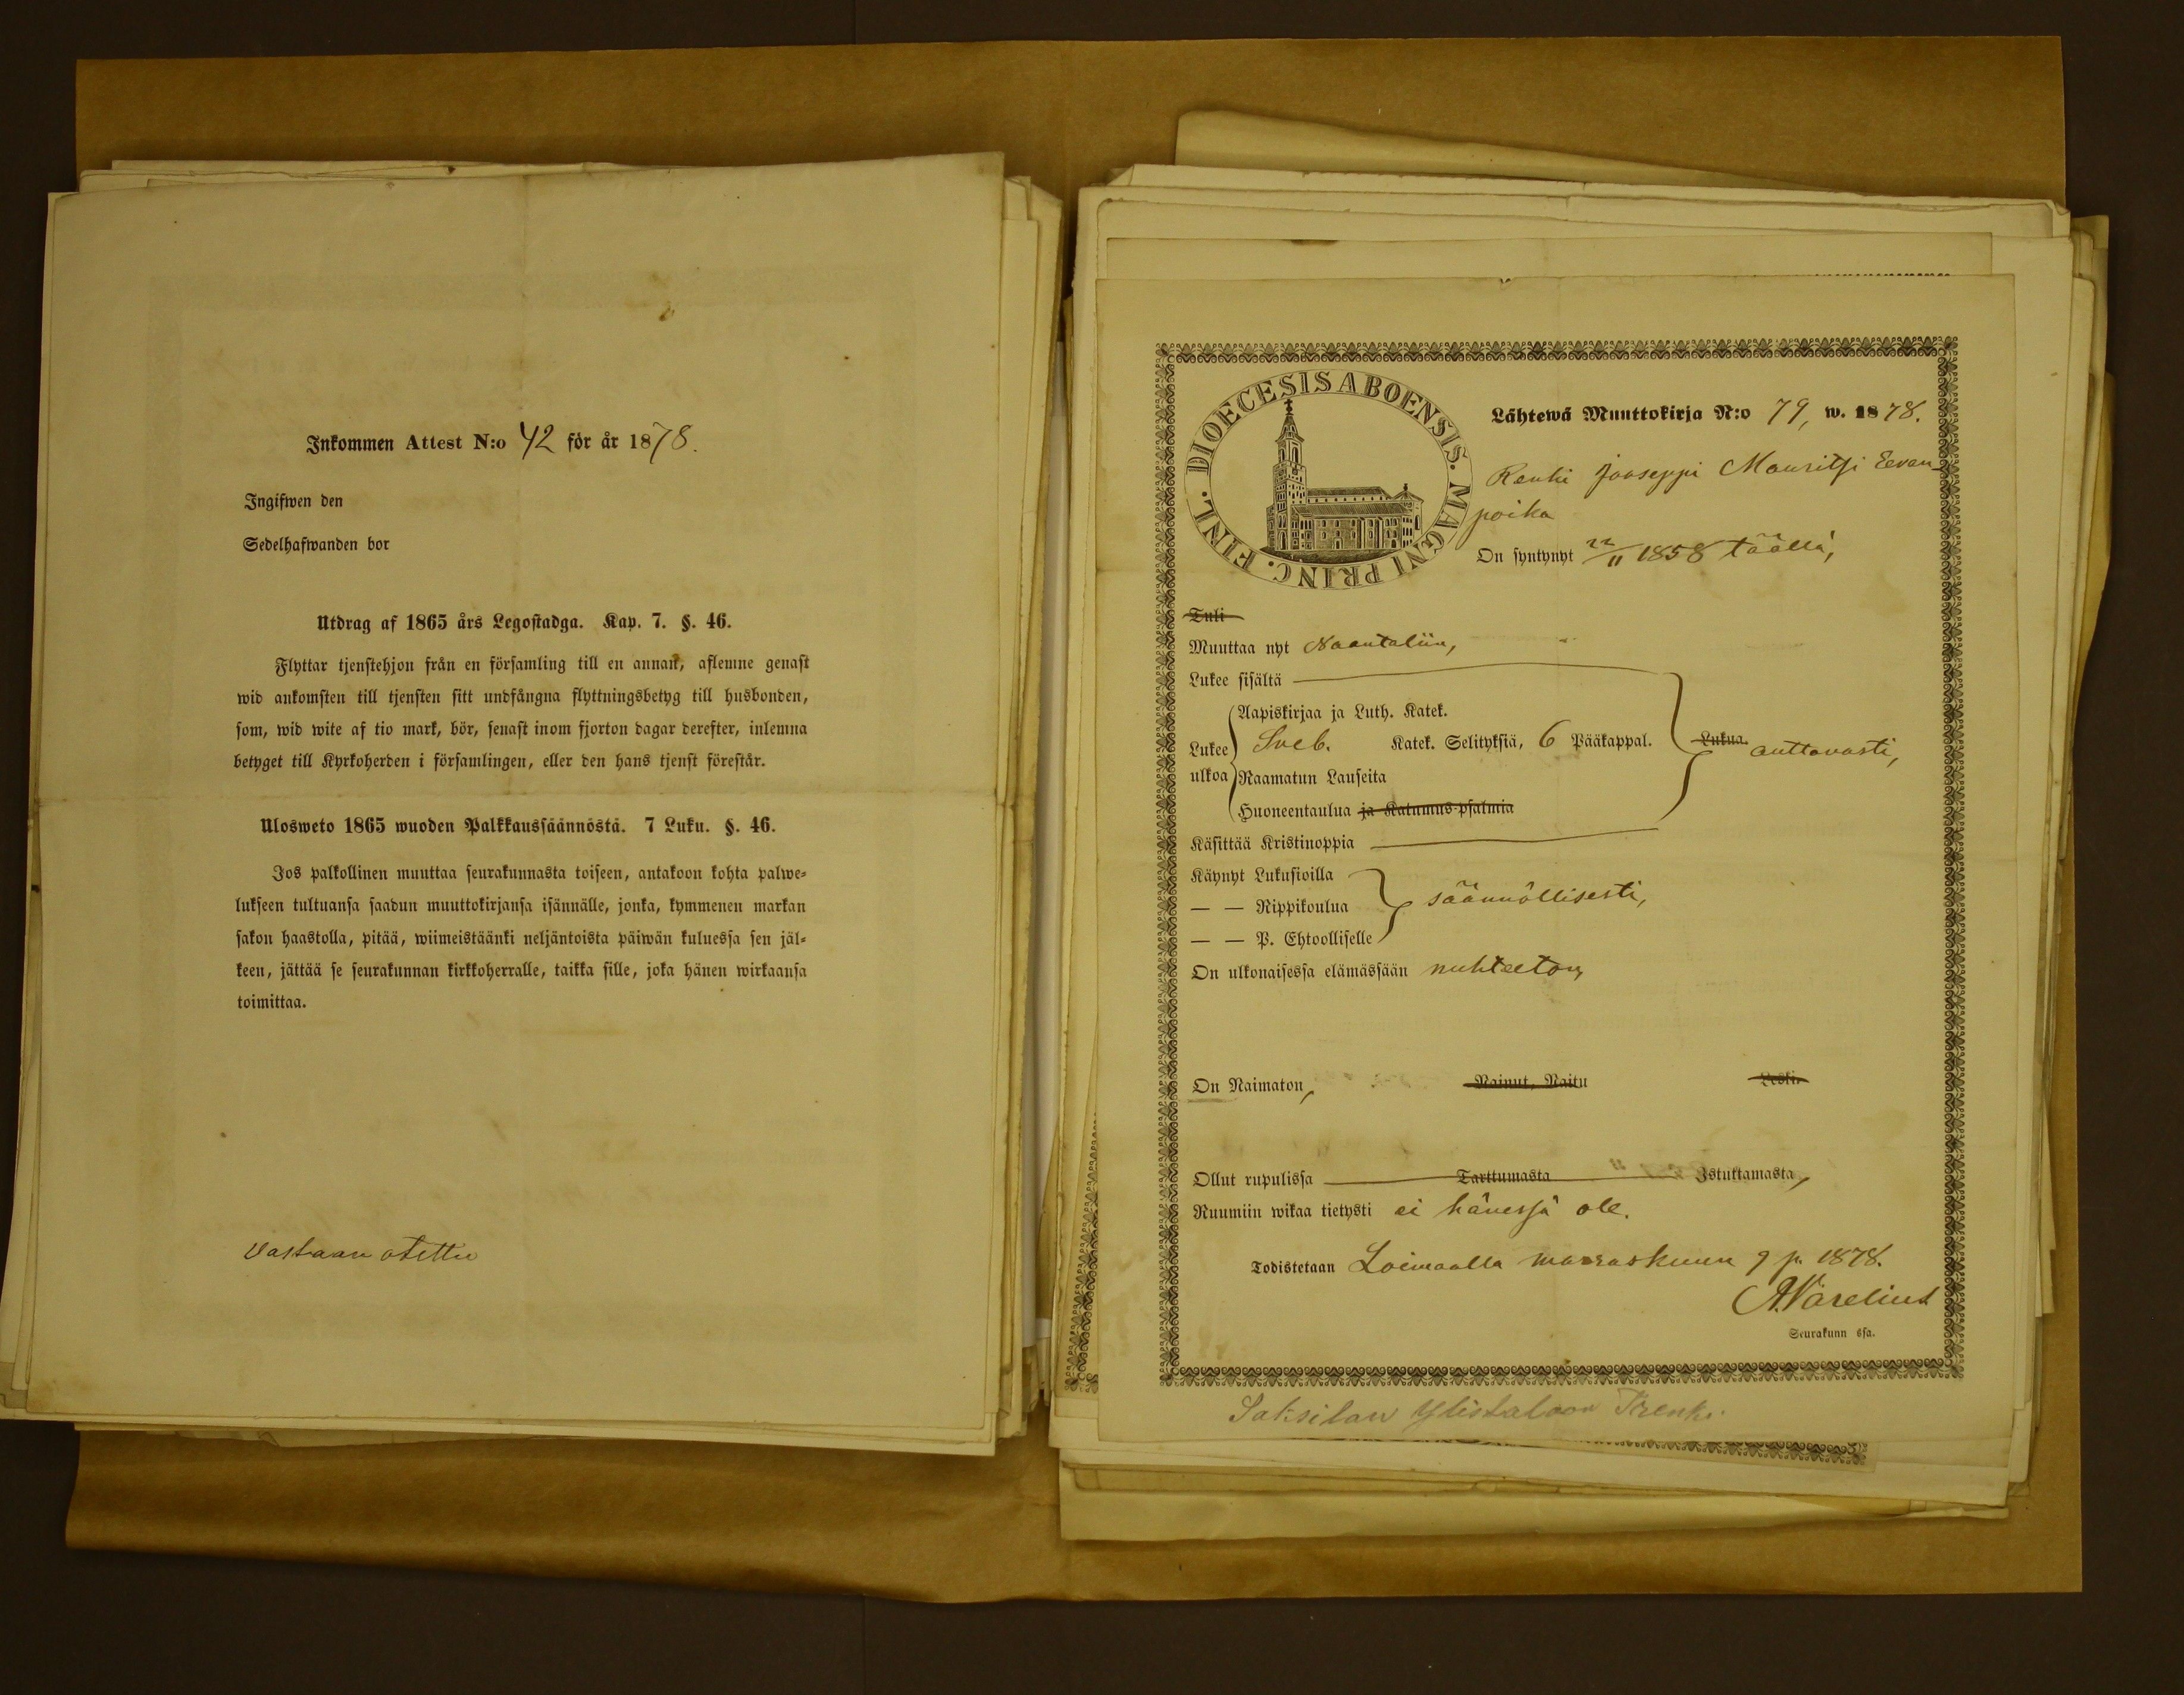 Inkommen Attest N:o 42 för år 1878.
Ingifwen den
Sedelhafwanden bor
Utdrag af 1865 års Legostadga. Kap. 7. §. 46.
Flyttar tjenstehjon från en församling till en annan, aflemne genast
wid ankomsten till tjensten sitt undfångna flyttningsbetyg till husbonden,
som, wid wite af tio mark, bör, senast inom fjorton dagar derefter, inlemna
betyget till Kyrkoherden i församlingen, eller den hans tjenst förestår.
Ulosweto 1865 wuoden Palkkaussäännöstä. 7 Luku. §. 46.
Jos palkollinen muuttaa seurakunnasta toiseen, antakoon kohta palwe-
lukseen tultuansa saadun muuttokirjansa isännälle, jonka, kymmenen markan
sakon haastolla, pitää, wiimeistäänki neljäntoista päiwän kuluessa sen jäl-
keen, jättää se seurakunnan kirkkoherralle, taikka sille, joka hänen wirkaansa
toimittaa.
Vastaan otettu
DIOECESIS ABOENSIS. MAGNI PRINC. FINL.
Lähtewä Muuttokirja N:o 79, w. 1878.
Renki Jooseppi Mauritsi Eevan-
poika
On syntynyt 22/11 1858 täällä,
Tuli
Muuttaa nyt Naantaliin,
Lukee sisältä
Aapiskirjaa ja Luth. Katek.
Lukee Sveb. Katek. Selityksiä, 6 Pääkappal. Lukua. auttavasti,
ulkoa Raamatun Lauseita
Huoneentaulua ja Katumus-psalmia
Käsittää Kristinoppia
Käynyt Lukusioilla
— — Rippikoulua säännöllisesti,
— — P. Ehtoolliselle
On ulkonaisessa elämässään nuhteeton,
On Naimaton, Nainut, Naitu Leski.
Ollut rupulissa Tarttumasta Istuttamasta,
Ruumiin wikaa tietysti ei hänessä ole.
Todistetaan Loimaalla marraskuun 9 p. 1878.
A. Varelius
Seurakunn ssa.
Saksilan Ylistaloon Trenki.